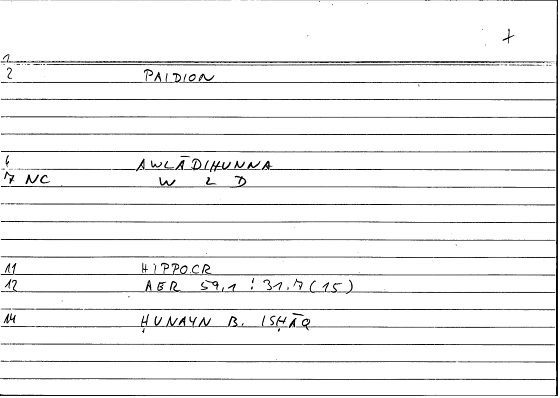 +
1
2 PAIDION
6 AWLĀDIHUNNA
7 NC W L D
11 HIPPOCR
12 AER 59,1 : 31.7 (15)
14 ḤUNAYN B. ISḤĀQ